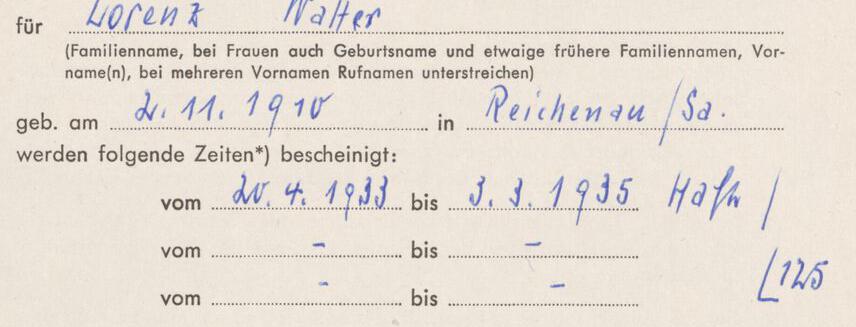 für Lorenz Walter
(Familienname, bei Frauen auch Geburtsname und etwaige frühere Familiennamen, Vor-
name(n), bei mehreren Vornamen Rufnamen unterstreichen)
geb. am 2. 11. 1910 in Reichenau / Sa.
werden folgende Zeiten*) bescheinigt:
vom 20. 4. 1933 bis 3. 3. 1935 Haft /
vom - bis - [125
vom - bis -